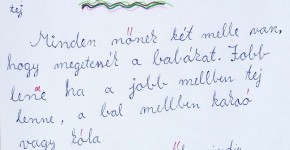 tej
Minden nőnek két melle van,
hogy megetenék a babákat. Jobb
lene ha a jobb mellben tej
lenne, a bal mellben kakaó
vagy kóla.